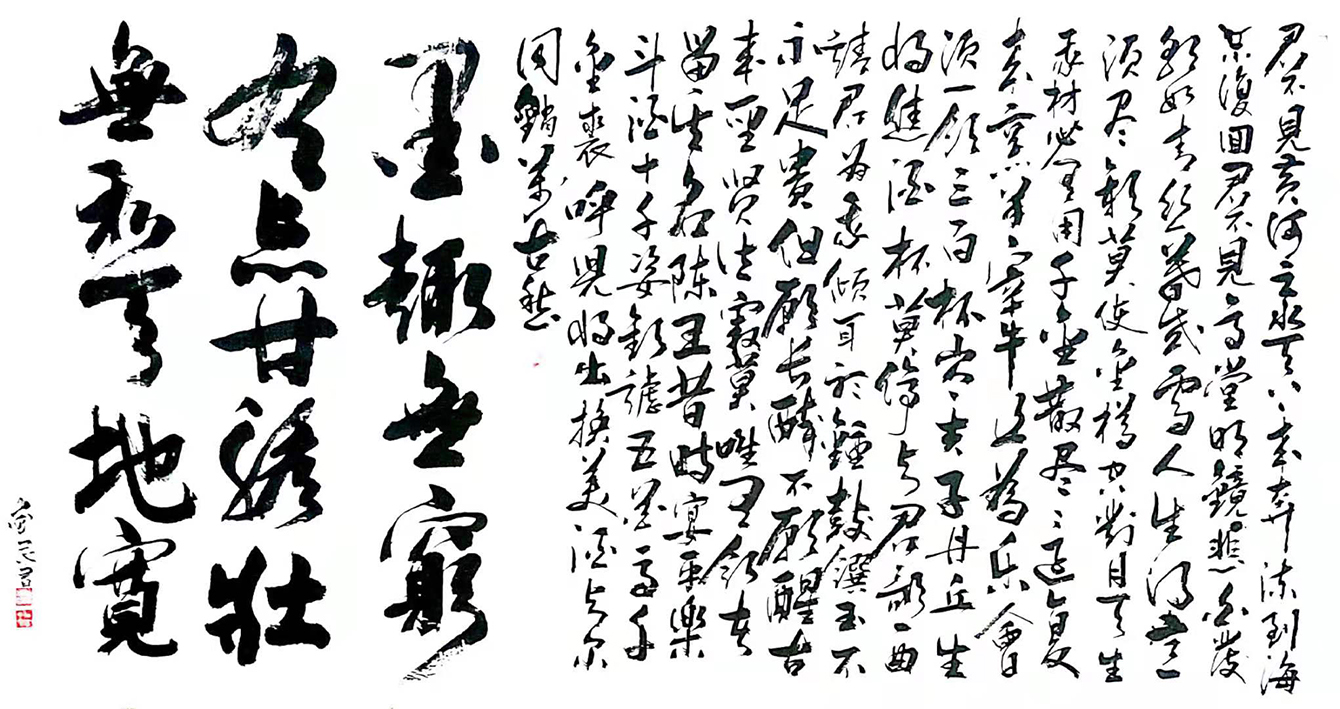 君不見黄河之水天上来奔流到海
不復回君不見高堂明鏡悲白髮
朝如青丝暮成雪人生得意
須尽歡莫使金樽空對月天生
我材必有用千金散尽還復
来烹羊宰牛且為樂會
須一飲三百杯岑夫子丹丘生
将進酒杯莫停与君歌一曲
請君為我傾耳聽鐘鼓饌玉不
足貴但願長醉不願醒古
来聖賢皆寂寞唯有飲者
留其名陳王昔時宴平樂
斗酒十千姿歡謔五花馬千
金裘呼児将出換美酒与尔
同銷萬古愁
墨趣無窮
甘壯
無私天地寬